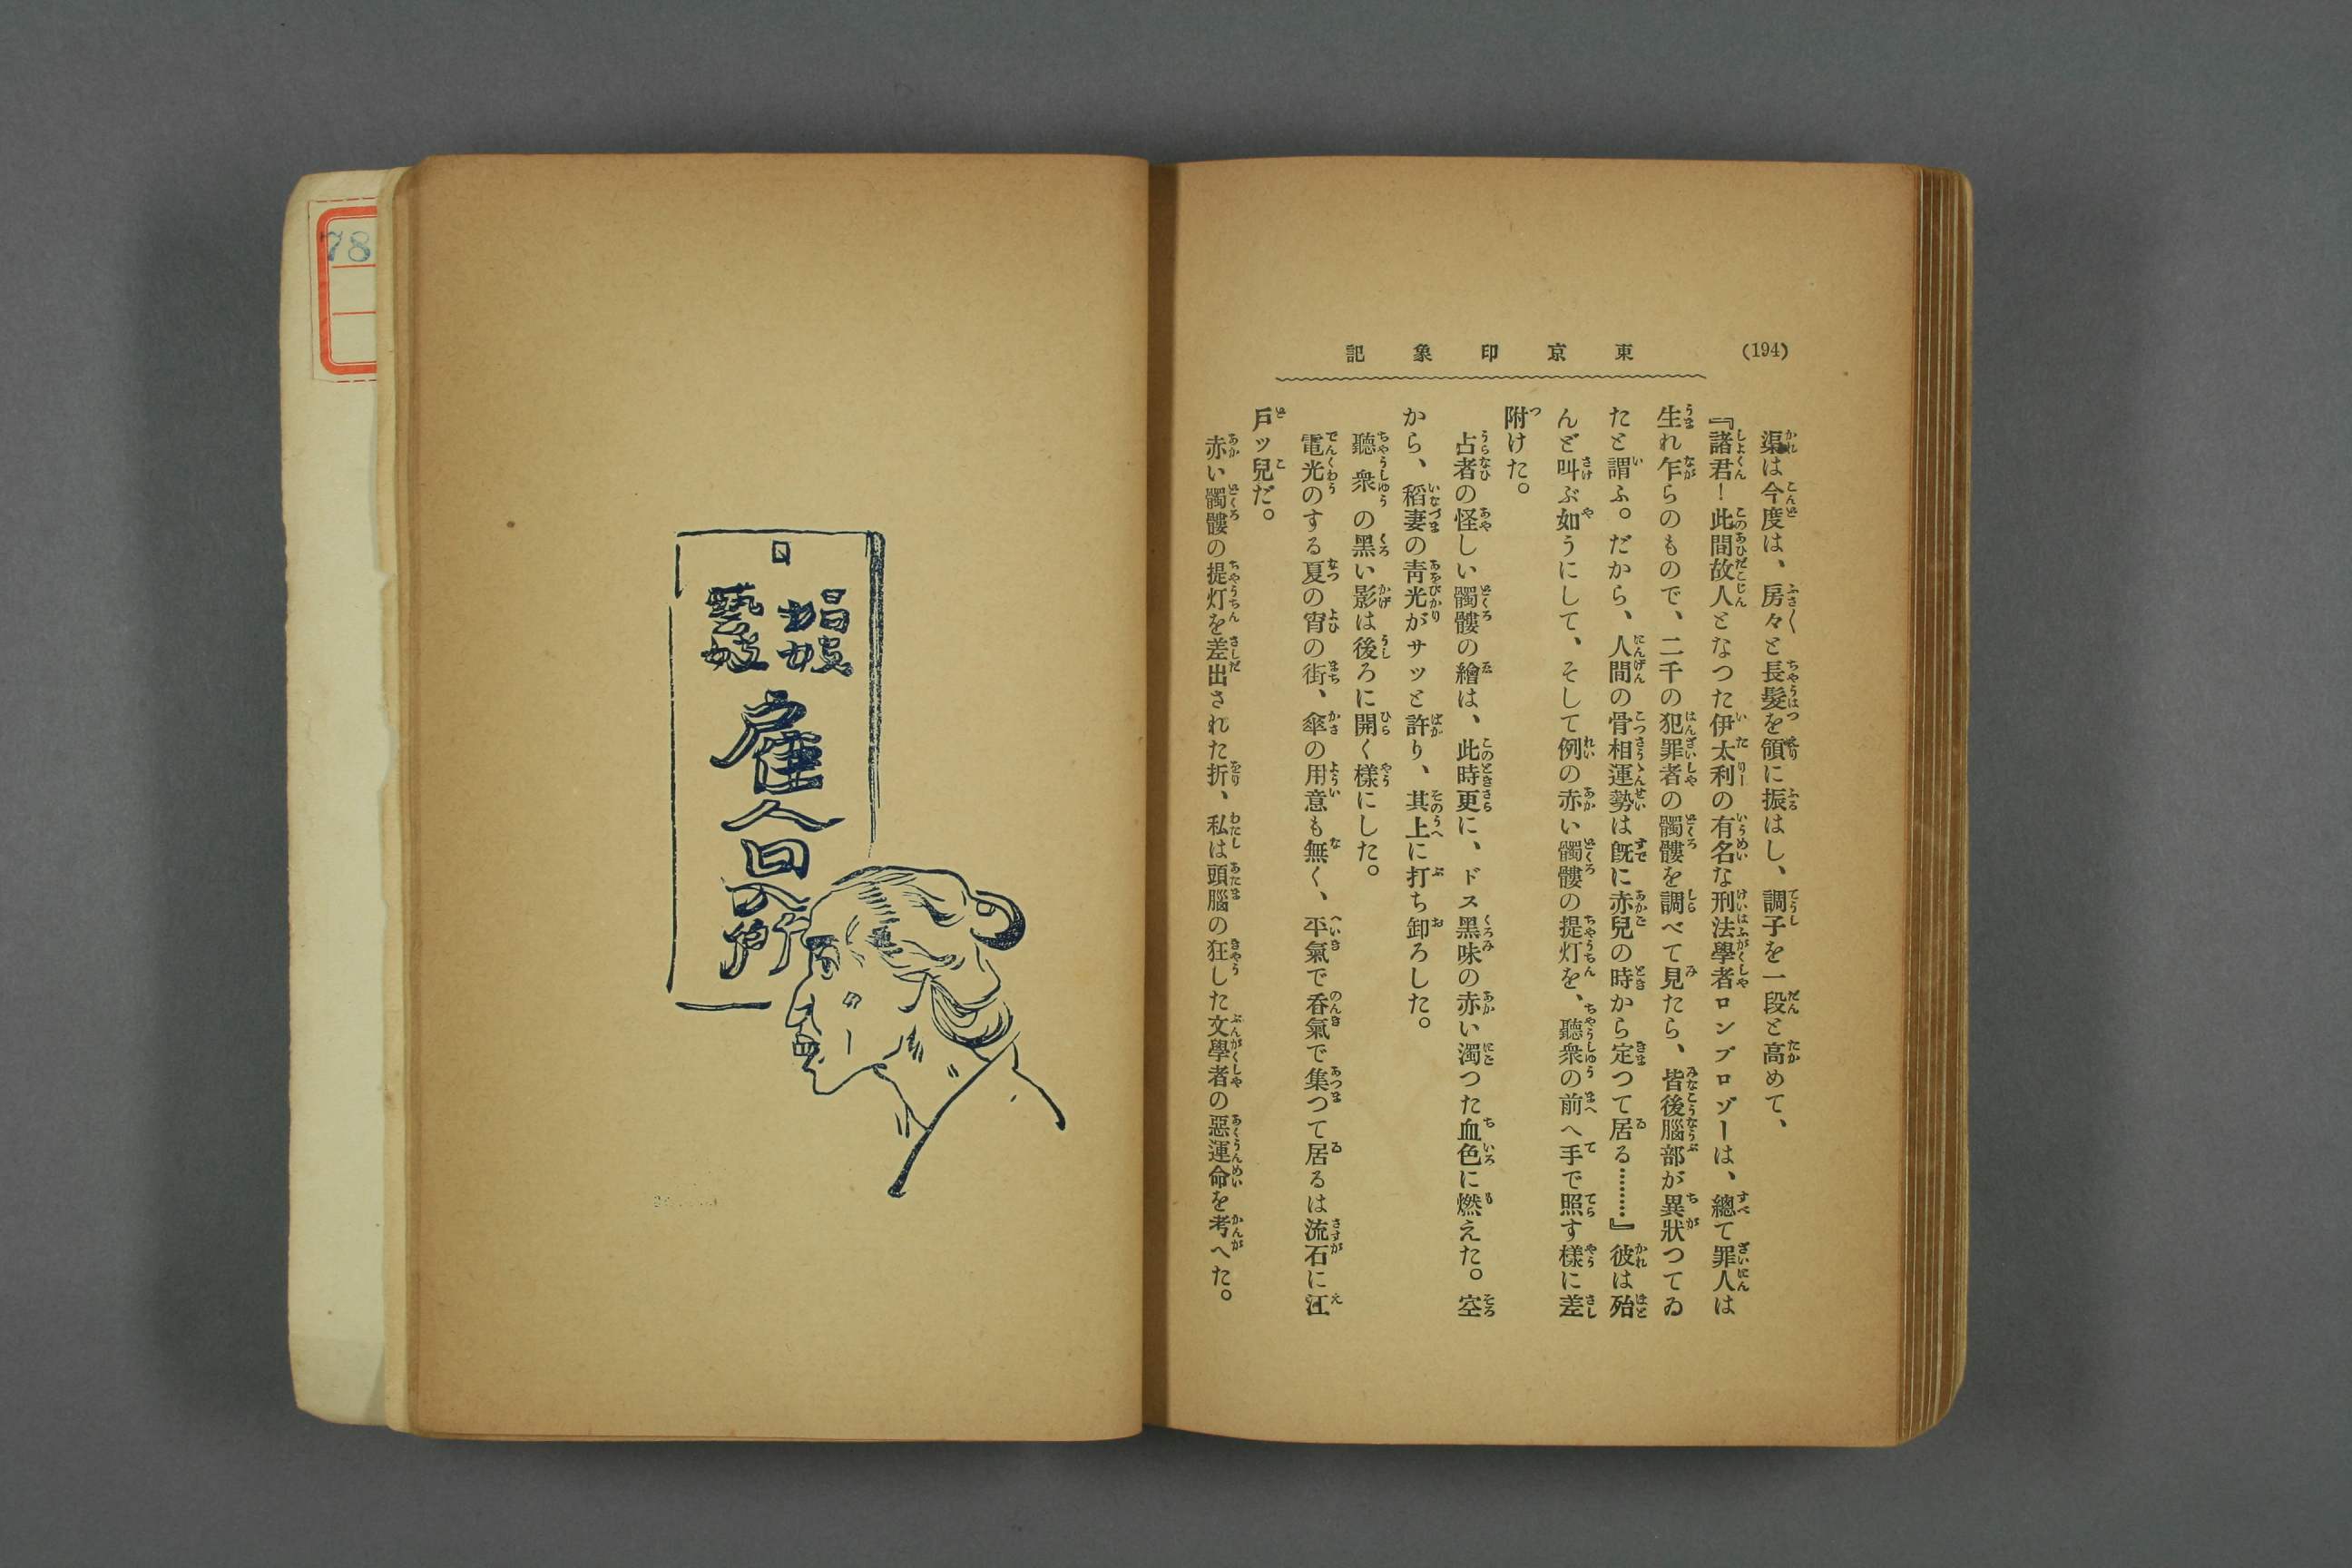 (194)
東京印象記
渠は今度は、房々と長髮を領に振はし、調子を一段と高めて、
『諸君！此間故人となつた伊太利の有名な刑法學者ロンブロゾーは、總て罪人は
生れ乍らのもので、二千の犯罪者の髑髏を調べて見たら、皆後腦部が異狀つてゐ
たと謂ふ。だから、人間の骨相運勢は既に赤兒の時から定つて居る………』彼は殆
んど叫ぶ如うにして、そして例の赤い髑髏の提灯を、聽衆の前へ手で照す樣に差
附けた。
占者の怪しい髑髏の繪は、此時更に、ドス黑味の赤い濁つた血色に燃えた。空
から、稻妻の靑光がサッと許り、其上に打ち卸ろした。
聽衆の黑い影は後ろに開く樣にした。
電光のする夏の宵の街、傘の用意も無く、平氣で呑氣で集つて居るは流石に江
戶ッ兒だ。
赤い髑髏の提灯を差出された折、私は頭腦の狂した文學者の惡運命を考へた。
娼妓
藝妓
雇人口入所
78